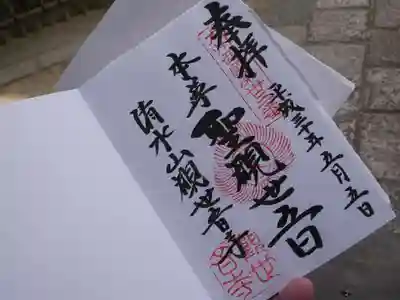 平成三十年五月五日
奉拝
聖観世音
本尊
清水山観世音寺